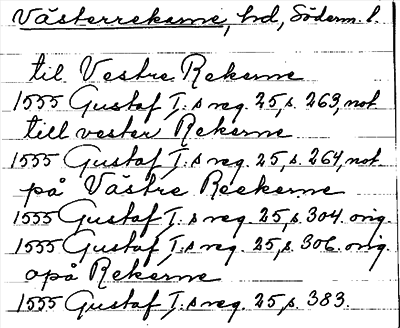 Västerrekarne, hd, Söderm. l.
til Vestre Rekerne
1555 Gustaf I:s reg. 25, s. 263, not
till vester Rekerne
1555 Gustaf I:s reg. 25, s. 264, not.
på Västre Reekerne
1555 Gustaf I:s reg. 25, s. 304. orig.
1555 Gustaf I:s reg. 25, s. 306. orig.
opå Rekerne
1555 Gustaf I:s reg. 25, s. 383.